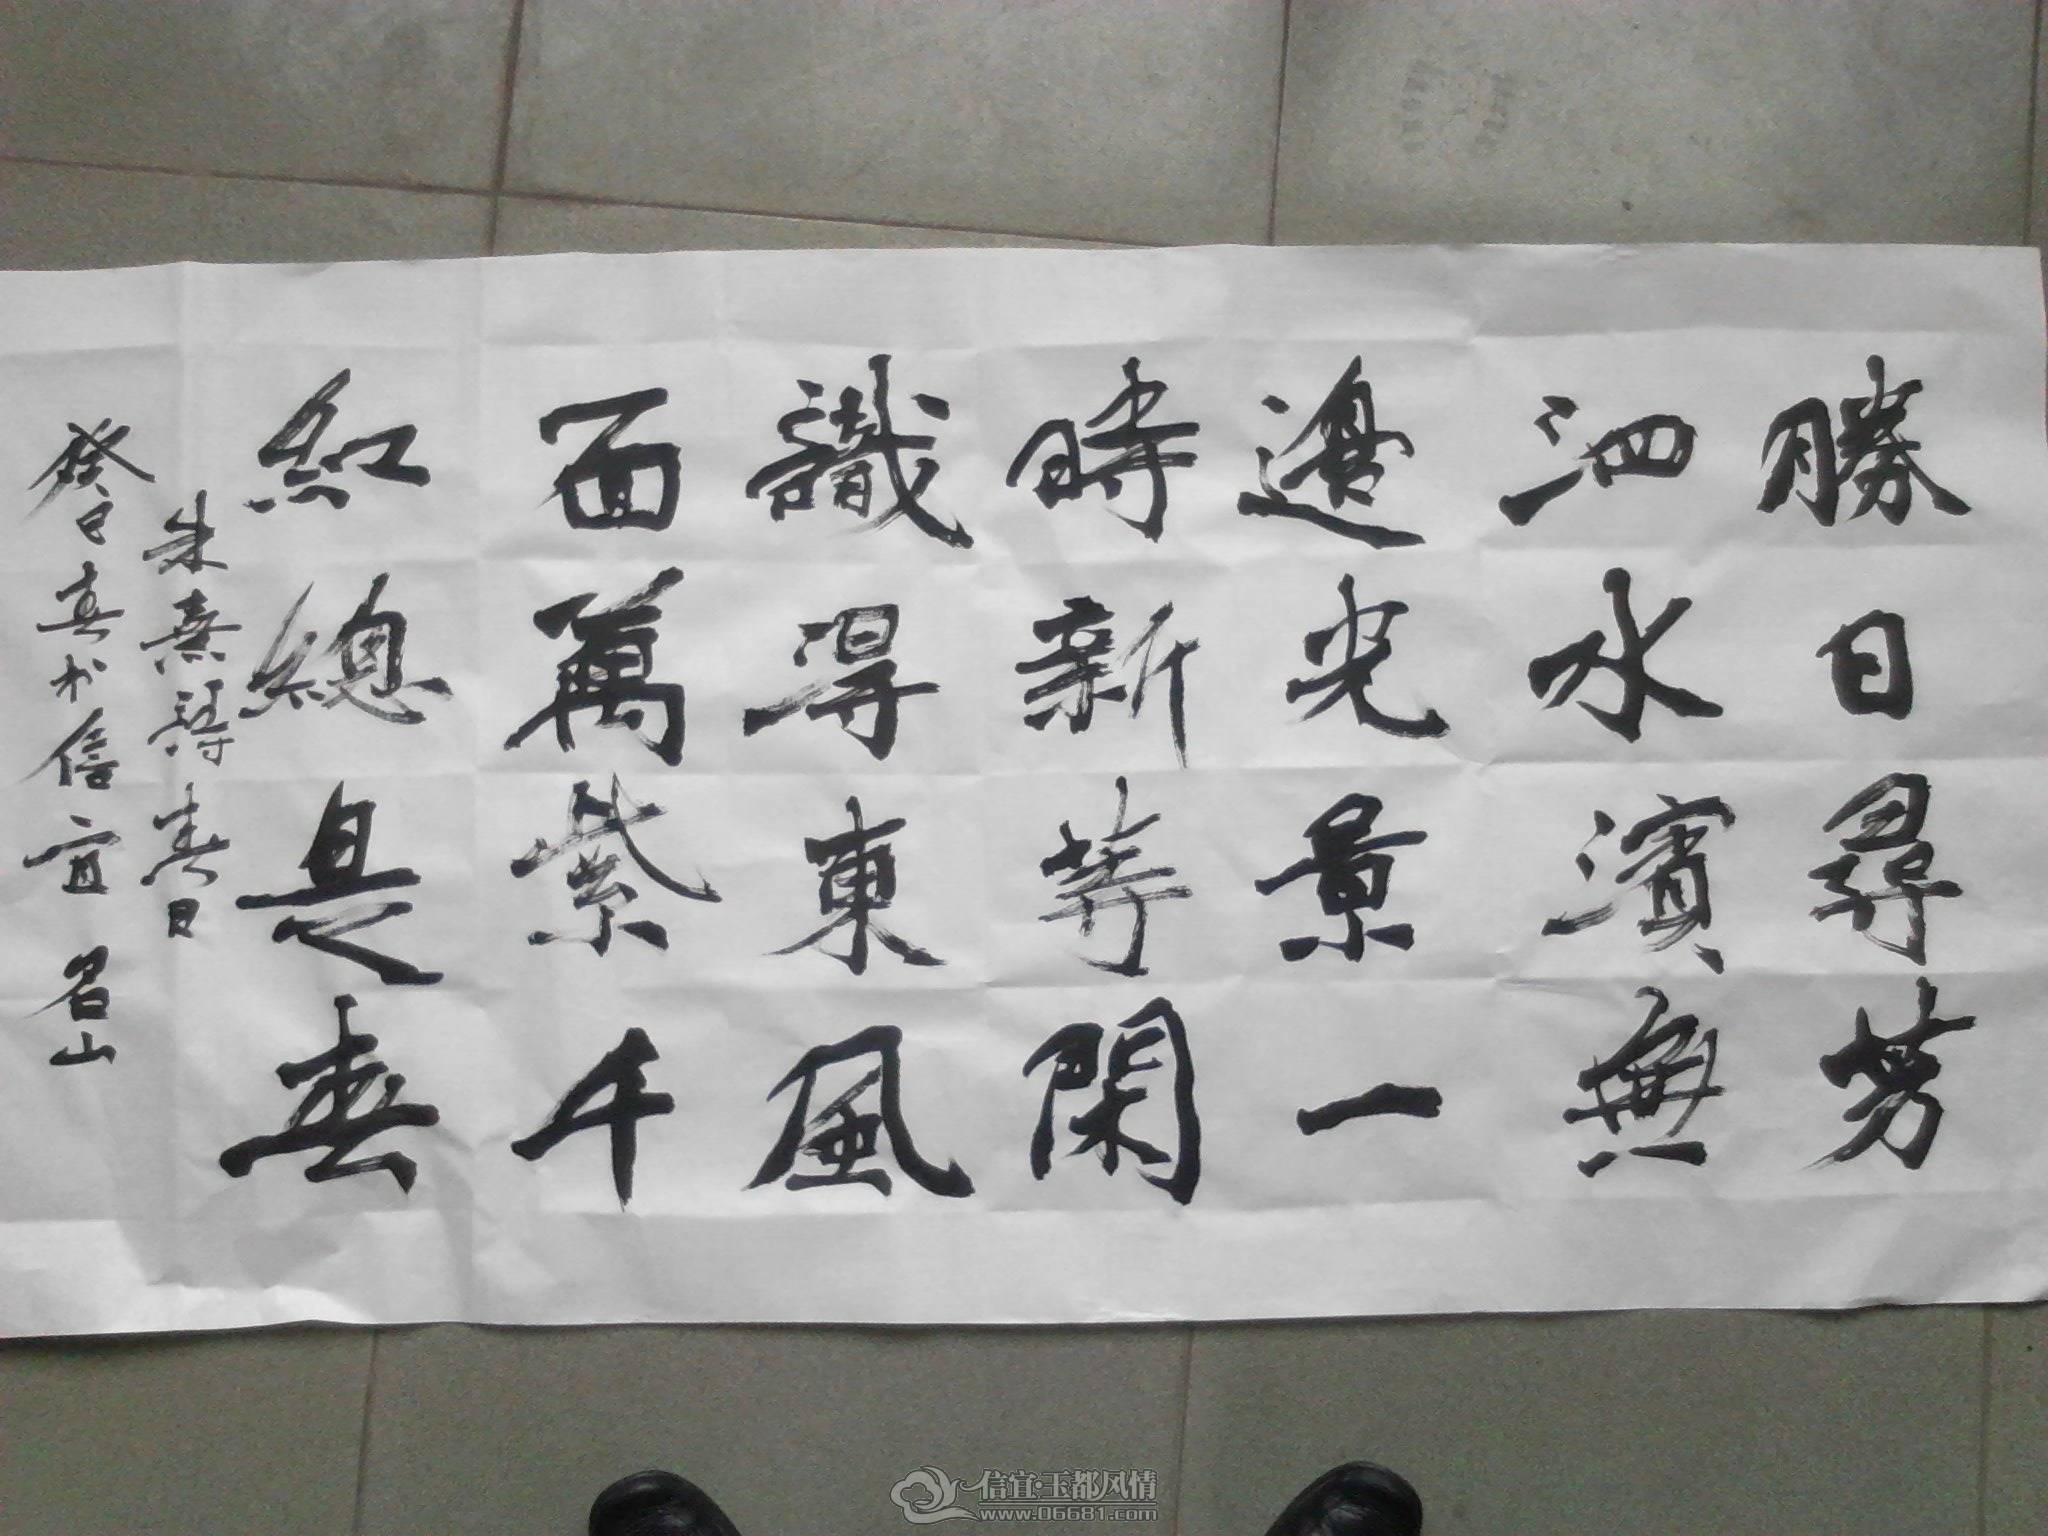 勝日尋芳
泗水濱無
邊光景一
時新等閑
識得東風
面萬紫千
紅總是春
朱熹詩春日
癸巳春於信宜名山
信宜·玉都风情
www.06681.com